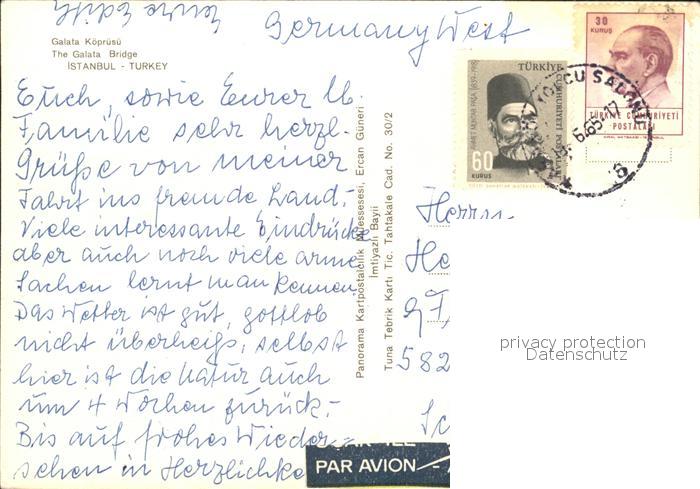 Germany West
Galata Köprüsü
The Galata Bridge
İSTANBUL - TURKEY
Euch, sowie Eurer lb.
Familie sehr herzl.
Grüße von meiner
Fahrt ins fremde Land.
Viele interessante Eindrücke
aber auch noch viele arme
Sachen lernt man kennen.
Das Wetter ist gut, gottlob
nicht überheiß, selbst
hier ist die Natur auch
um 4 Wochen zurück.-
Bis auf frohes Wieder-
sehen in Herzlichke
Eure Edith
Panorama Kartpostalcilik Müessesesi, Ercan Güneri
İmtiyazlı Bayii
Tuna Tebrik Kartı Tic. Tahtakale Cad. No. 30/2
TÜRKİYE CUMHURİYETİ POSTALARI
60
KURUŞ
30
KURUŞ
TÜRKİYE CUMHURİYETİ
POSTALARI
YOLCU SALONU
6.65-17
6
Herrn
He
582
PAR AVION
privacy protection
Datenschutz